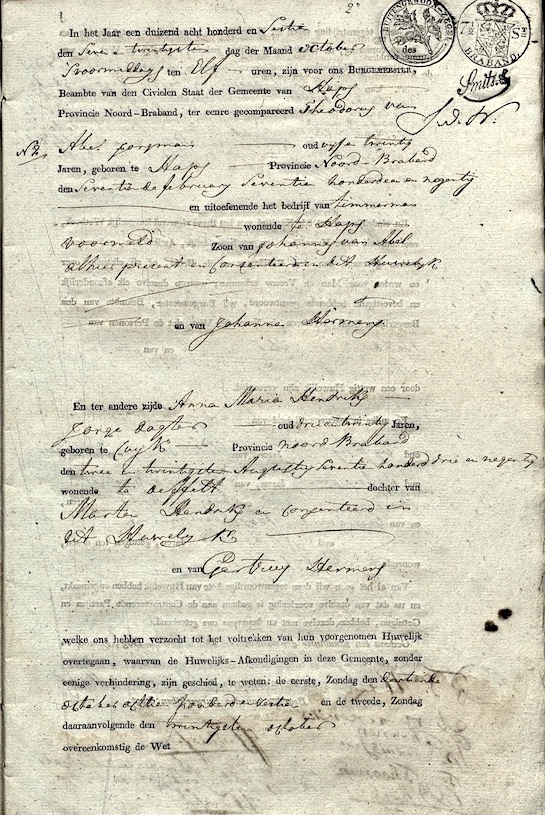 2
BUITENGEWOON ZEGEL
des
7½ St
BRABAND
Smits
In het Jaar een duizend acht honderd en Sestien
den Seven en twintigsten dag der Maand october
Svoormiddags ten Elf uren, zijn voor ons BURGEMEESTER,
Beambte van den Civielen Staat der Gemeente van Haps
Provincie Noord-Braband, ter eenre gecompareerd Theodorus van
Abel jongman oud vyfen twintig
Jaren, geboren te Haps Provincie Noord-Braband
den Seventiende february Seventien honderd een en negentig
en uitoefenende het bedrijf van timmerman
wonende te Haps
voormeld Zoon van Johannes van Abel
alhier present en Consenteerd in dit Huwelyk
en van Johanna Hermens
En ter andere zijde Anna Maria Hendriks
Jonge dogter oud drie en twintig Jaren,
geboren te Cuyk Provincie Noord Braband
den twee en twintigsten Seventien honderd drie en negentig
wonende te oeffelt dochter van
Marten Hendriks en Consenteerd in
dit Huwelyk
en van Gertruy Hermens
welke ons hebben verzocht tot het voltrekken van hun voorgenomen Huwelijk
overtegaan, waarvan de Huwelijks-Afkondigingen in deze Gemeente, zonder
eenige verhindering, zijn geschied, te weten: de eerste, Zondag den dertiende
october achtien honderd en sestien en de tweede, Zondag
daaraanvolgende den twintigsten october
overeenkomstig de Wet